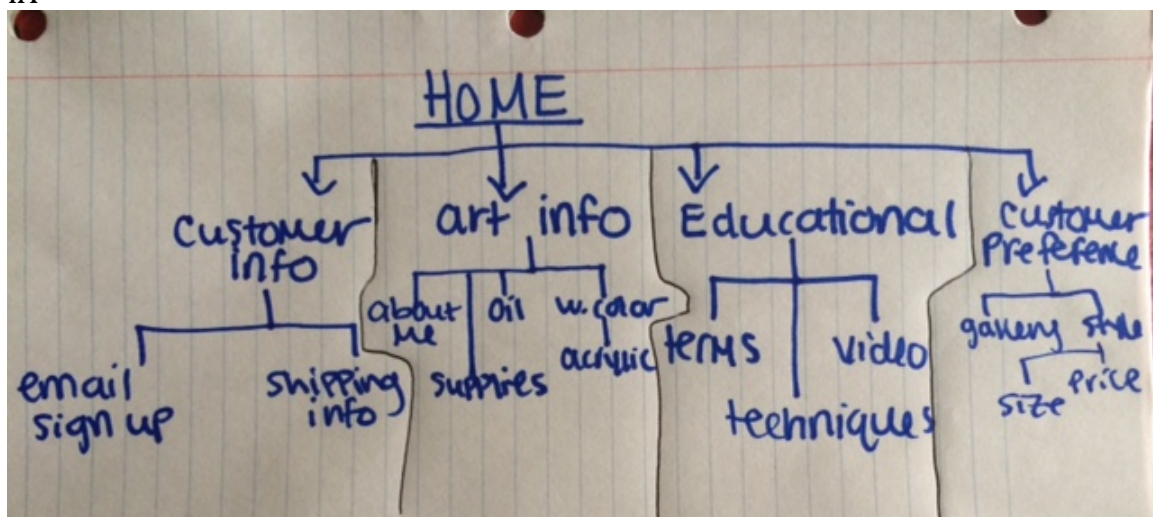 HOME
Customer
info
email
sign up
shipping
info
art info
about
me
supplies
oil
w.color
acrylic
Educational
terms
techniques
video
customer
Preference
gallery
style
size
price